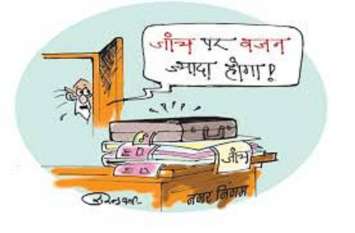 जाँच पर वजन
ज्यादा होगा!
जाँच
नगर निगम